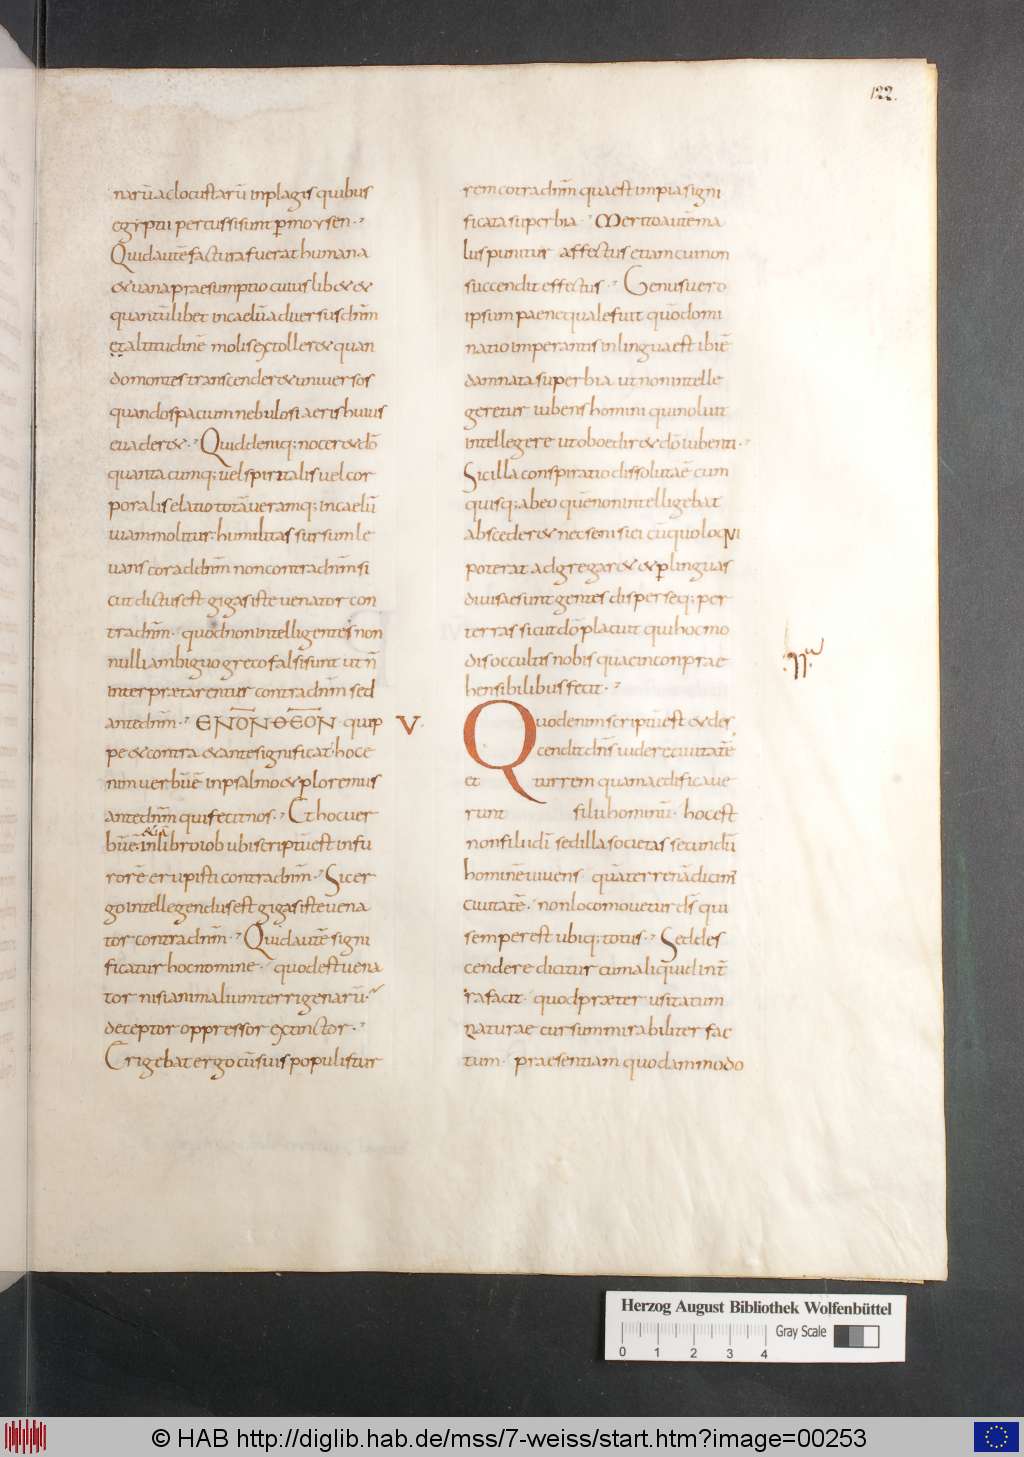 122.
narū ac locustarū inplagis quibus
egyptii percussi sunt p̄ moysen.
Quid autē factura fuerat humana
& uana praesumptio cuius lib& &
quantūlibet in caelū aduersus dnm̄
et altitudinē molis extoller& quan
do montes transcender& uniuersos
quando spacium nebulosi aeris huius
euader&. Quid deniq; nocer& dō
quantacumq; uel spiritalis uel cor
poralis elatio totā ueramq; in caelū
uiam molitur humilitas sursum le
uans cor ad dnm̄ non contra dnm̄ si
cut dictus est gigas iste uenator con
tra dnm̄. quod non intelligentes non
nulli ambiguo greco falsi sunt ut n̄
interpretarentur contra dnm̄ sed
ante dnm̄. ΕΝΟΝΘΕΟΝ quip
pe & contra & ante significat. hoc e
nim uerbū ē in psalmo & ploremus
ante dnm̄ qui fecit nos. Et hoc uer
bū ē & in libro iob ubi scriptū est in fu
rorē erupisti contra dnm̄. Sic er
go intellegendus est gigas iste uena
tor contra dnm̄. Quid autē signi
ficatur hoc nomine. quod est uena
tor nisi animalium terrigenarū.
deceptor oppressor extinctor.
Erigebat ergo cū suis populis tur
rem cotra dnm̄ qua est impia signi
ficata superbia. Merito autē ma
lus punitur affectus etiam cui non
succendit effectus. Genus uero
ipsum paene quale fuit quō domi
natio imperantis in lingua est ibi ē
damnata superbia ut non intelle
geretur iubens homini qui noluit
intellegere ut oboedir& dō iubenti.
Sic illa conspiratio dissoluta ē cum
quisq; ab eo quē non intelligebat
absceder& nec se nisi ei cū quo loqui
poterat adgregar& & p̄ linguas
diuisae sunt gentes disperseq; per
terras sicut dō placuit qui hoc mo
dis occultis nobis quae inconprae
hensibilibus fecit.
V. Quod enim scriptū est & des
cendit dn̄s uidere ciuitatē
et turrem quam aedificaue
runt filii hominū. hoc est
non filii dī. sed illa societas secundū
hominē uiuens quā terrenā dicimꝰ
ciuitatē. non loco mouetur dś qui
semper est ubiq; totus. Sed des
cendere dicitur cum aliquid in t̄
ra facit. quod praeter usitatum
naturae cursum mirabiliter fac
tum. praesentiam quodammodo
Herzog August Bibliothek Wolfenbüttel
Gray Scale
0 1 2 3 4
© HAB http://diglib.hab.de/mss/7-weiss/start.htm?image=00253